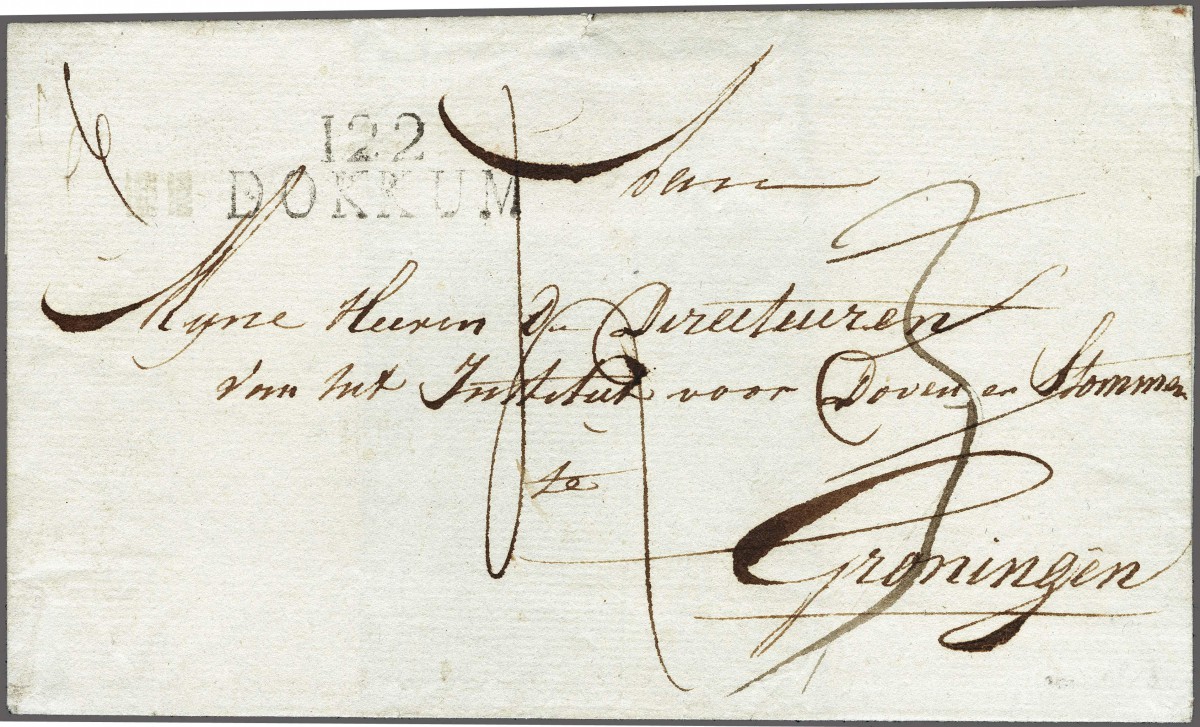 122
DOKKUM
Aan
Myne Heeren De Directeuren
van het Institut voor Doven en Stommen
te
Groningen
3